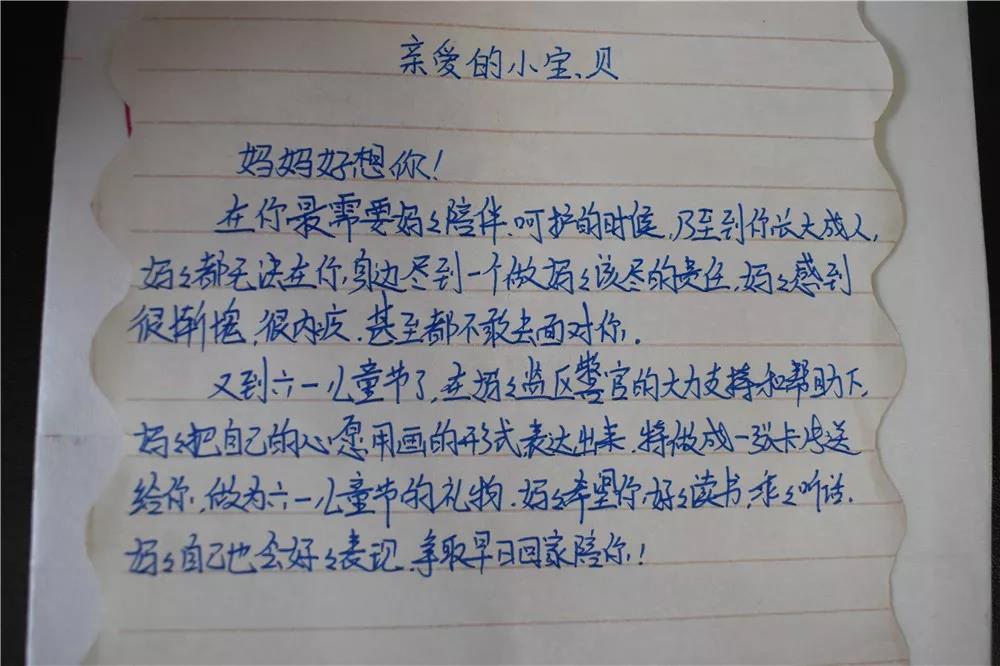 亲爱的小宝贝
妈妈好想你！
在你最需要妈々陪伴、呵护的时候，乃至到你长大成人，
妈々都无法在你身边尽到一个做妈々该尽的责任，妈々感到
很惭愧，很内疚，甚至都不敢去面对你。
又到六一儿童节了，在妈々监区警官的大力支持和帮助下，
妈々把自己的心愿用画的形式表达出来，特做成一张卡片送
给你，做为六一儿童节的礼物。妈々希望你好々读书，乖々听话，
妈々自己也会好々表现，争取早日回家陪你！